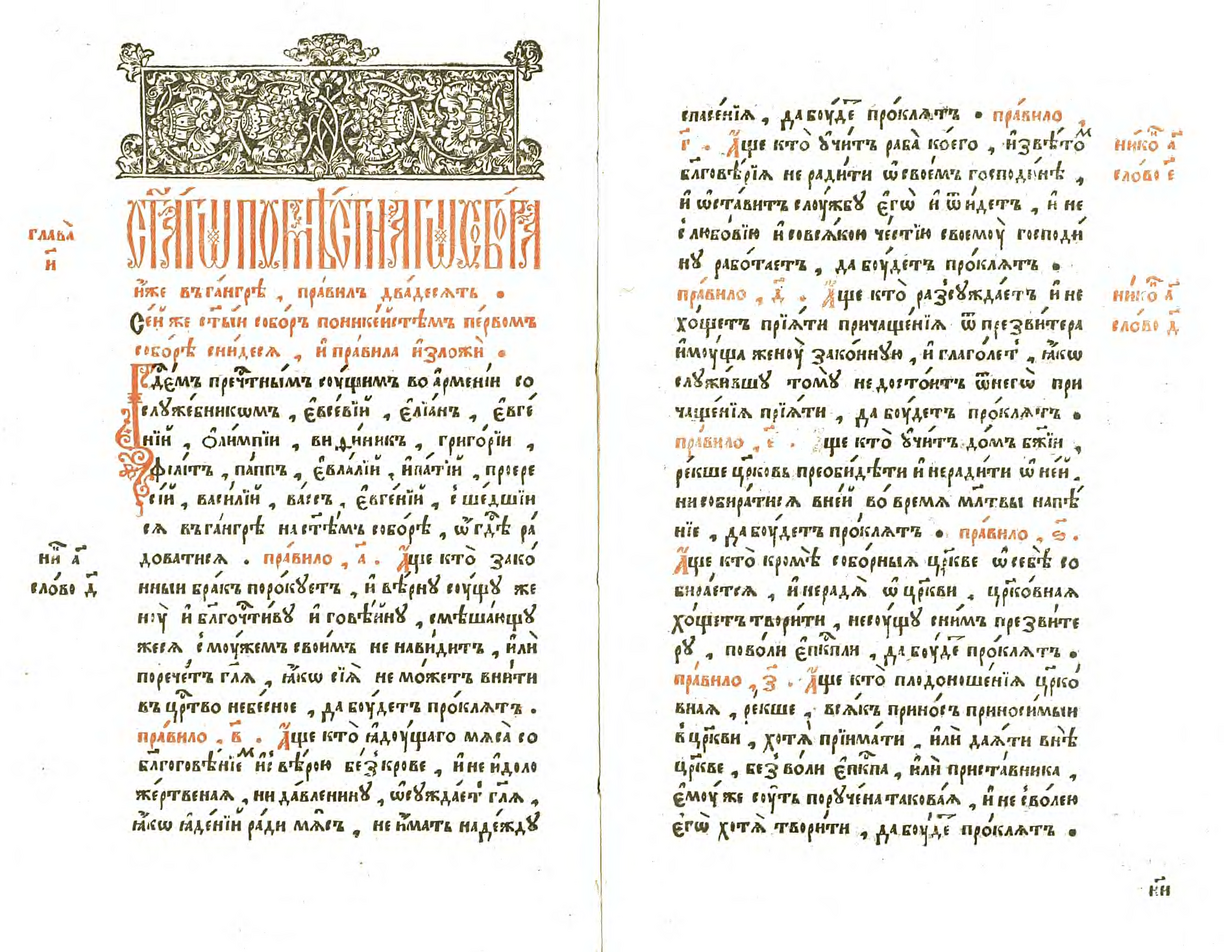 глава̀
и҃
ст҃а́гѡ помѣ́стнагѡ собо́ра
и҆́же въга́нгрѣ , пра́вилъ два́десять .
Се́й же ст҃ы́й собо́ръ поникѣ́йстѣмъ пе́рвомъ
собо́рѣ сни́десѧ , и҆ пра́вила и҆зложѝ .
Гдⷭ҇емъ пречⷭ҇тнымъ сꙋ́щимъ во а҆рме́нїи со
слꙋже́бникѡмъ , є҆все́вїй , є҆лїа́нъ , є҆вге́
нїй , ѻ҆лѵ́мпїи , виѳи́никъ , григо́рїи ,
фїли́тъ , па́ппъ , є҆ѵла́лїй , и҆па́тїй , проере́
сїй , васи́лїй , ва́ссъ , є҆вге́нїй , сше́дшїи
сѧ въга́нгрѣ наст҃ѣ́мъ собо́рѣ , ѡ҆ гдⷭ҇ѣ ра́
доватисѧ . пра́вило , а҃ . А҆́ще кто̀ зако́
нныи бра́къ порокꙋ́етъ , и҆ вѣ́рнꙋ сꙋ́щꙋ же
нꙋ̀ и҆ блгⷭ҇оче́тивꙋ и҆ говѣ́йнꙋ , смѣша́ющꙋ
жесѧ смꙋ́жемъ свои́мъ не нави́дитъ , и҆лѝ
порече́тъ гл҃ѧ , ꙗ҆́кѡ сїѧ̀ не мо́жетъ вни́ти
въ црⷭ҇тво небе́сное , да бꙋ́детъ про́клѧтъ .
пра́вило , в҃ . А҆́ще кто̀ ꙗ҆дꙋ́щаго мѧ́са со
бл҃гоговѣ́нїеⷨ и҆с вѣ́рою бе́з̾ кро́ве , и҆ не и҆́доло
же́ртвенаѧ , ни да́вленинꙋ , ѡ҆сꙋжда́етъ гл҃ѧ ,
ꙗ҆́кѡ ꙗ҆де́нїй ра́ди мѧ́съ , не и҆́мать наде́ждꙋ
ни́ⷦ҇ а҃
сло́во д҃
спасе́нїѧ , да бꙋ́деⷮ про́клѧтъ . пра́вило ,
г҃ . А҆́ще кто̀ ᲂу҆чи́тъ раба̀ ко́его , и҆звѣ́тоⷨ
бл҃говѣ́рїѧ не ради́ти ѡ҆своє́мъ господи́нѣ ,
и҆ ѡ҆ста́витъ слꙋ́жбꙋ є҆гѡ̀ и҆ ѿи́детъ , и҆ не
слюбо́вїю и҆совсѧ́кою че́стїю своемꙋ̀ господи́
нꙋ рабо́таетъ , да бꙋ́детъ про́клѧтъ .
пра́вило , д҃ . А҆́ще кто̀ разсꙋжда́етъ и҆ не
хо́щетъ прїѧ́ти причаще́нїѧ ѿ презви́тера
и҆мꙋ́ща женꙋ̀ зако́ннꙋю , и҆ глаго́летъ , ꙗ҆́кѡ
слꙋжи́вшꙋ томꙋ̀ не досто́итъ ѿнегѡ̀ при
чаще́нїѧ прїѧ́ти , да бꙋ́детъ про́клѧтъ .
пра́вило , є҃ . А҆́ще кто̀ ᲂу҆чи́тъ до́мъ бж҃їи ,
ре́кше цр҃ковь преоби́дѣти и҆ неради́ти ѡ҆ не́й ,
ни собира́тисѧ вне́й во вре́мѧ мл҃твы напѣ́
нїе , да бꙋ́детъ про́клѧтъ . пра́вило , ѕ҃ .
А҆́ще кто̀ кромѣ̀ собо́рныѧ цр҃кве ѡ҆ себѣ̀ со
бира́етсѧ , и҆нерадѧ̀ ѡ҆ цр҃кви , цр҃ко́внаѧ
хо́щетъ твори́ти , несꙋ́щꙋ сни́мъ презви́те
рꙋ , пово́ли є҆пⷭ҇кпли , да бꙋ́деⷮ про́клѧтъ .
пра́вило , з҃ . А҆́ще кто̀ плодоноше́нїѧ цр҃ко́
внаѧ , ре́кше , всѧ́къ прино́съ приноси́мыи
вцр҃кви , хотѧ̀ прїима́ти , и҆лѝ даѧ́ти внѣ̀
цр҃кве , без̾ во́ли є҆пⷭ҇кпа , и҆лѝ приста́вника ,
є҆мꙋ́же сꙋ́ть порꙋ́чена такова́ѧ , и҆ не сво́лею
є҆гѡ̀ хотѧ̀ твори́ти , да бꙋ́деⷮ про́клѧтъ .
нико́ⷩ҇ а҃
сло́во є҃
нико́ⷩ҇ а҃
сло́во д҃
к҃и